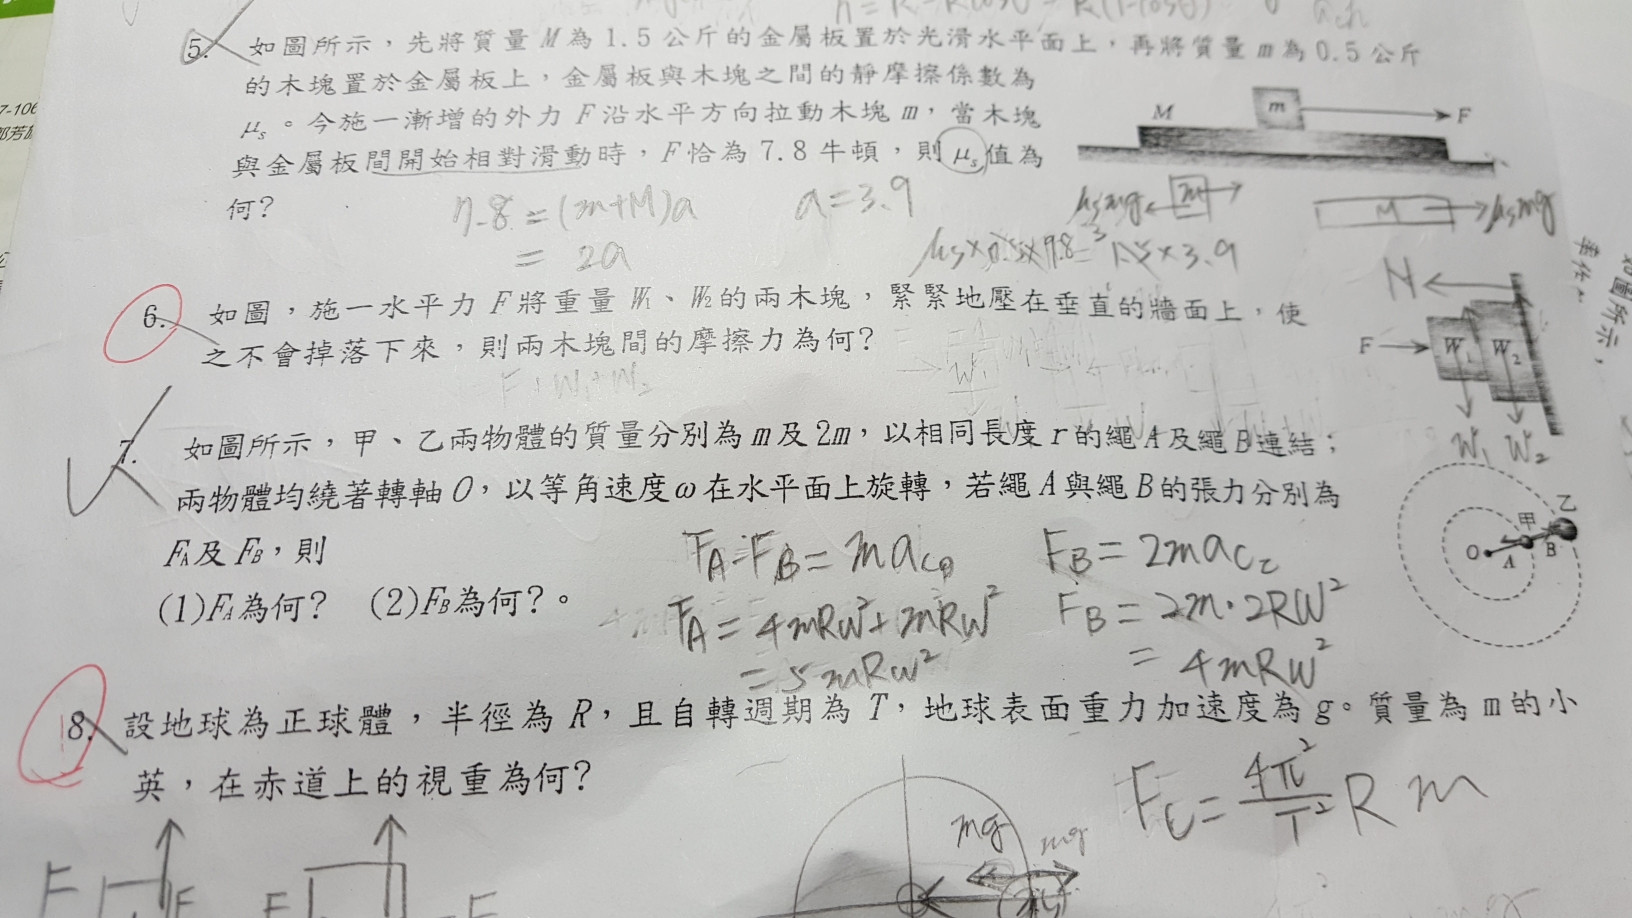 5. 如圖所示，先將質量 M 為 1.5 公斤的金屬板置於光滑水平面上，再將質量 m 為 0.5 公斤
的木塊置於金屬板上，金屬板與木塊之間的靜摩擦係數為
μs。今施一漸增的外力 F 沿水平方向拉動木塊 m，當木塊
與金屬板間開始相對滑動時，F 恰為 7.8 牛頓，則 μs 值為
何？
M
m
F
7.8 = (m+M)a
= 2a
a = 3.9
μsmg
m
M
μsmg
μs×0.5×9.8 = 1.5×3.9
6. 如圖，施一水平力 F 將重量 W1、W2 的兩木塊，緊緊地壓在垂直的牆面上，使
之不會掉落下來，則兩木塊間的摩擦力為何？
N
F
W1
W2
W1 W2
如圖所示，
7. 如圖所示，甲、乙兩物體的質量分別為 m 及 2m，以相同長度 r 的繩 A 及繩 B 連結；
兩物體均繞著轉軸 O，以等角速度 ω 在水平面上旋轉，若繩 A 與繩 B 的張力分別為
FA 及 FB，則
(1)FA 為何？ (2)FB 為何？。
乙
甲
O
A
B
FA-FB = mac甲
FA = 4mRW²+mRW²
= 5mRW²
FB = 2mac乙
FB = 2m·2RW²
= 4mRW²
8. 設地球為正球體，半徑為 R，且自轉週期為 T，地球表面重力加速度為 g。質量為 m 的小
英，在赤道上的視重為何？
Fc = 4π²/T² R m
mg
mg
F
F
F
F